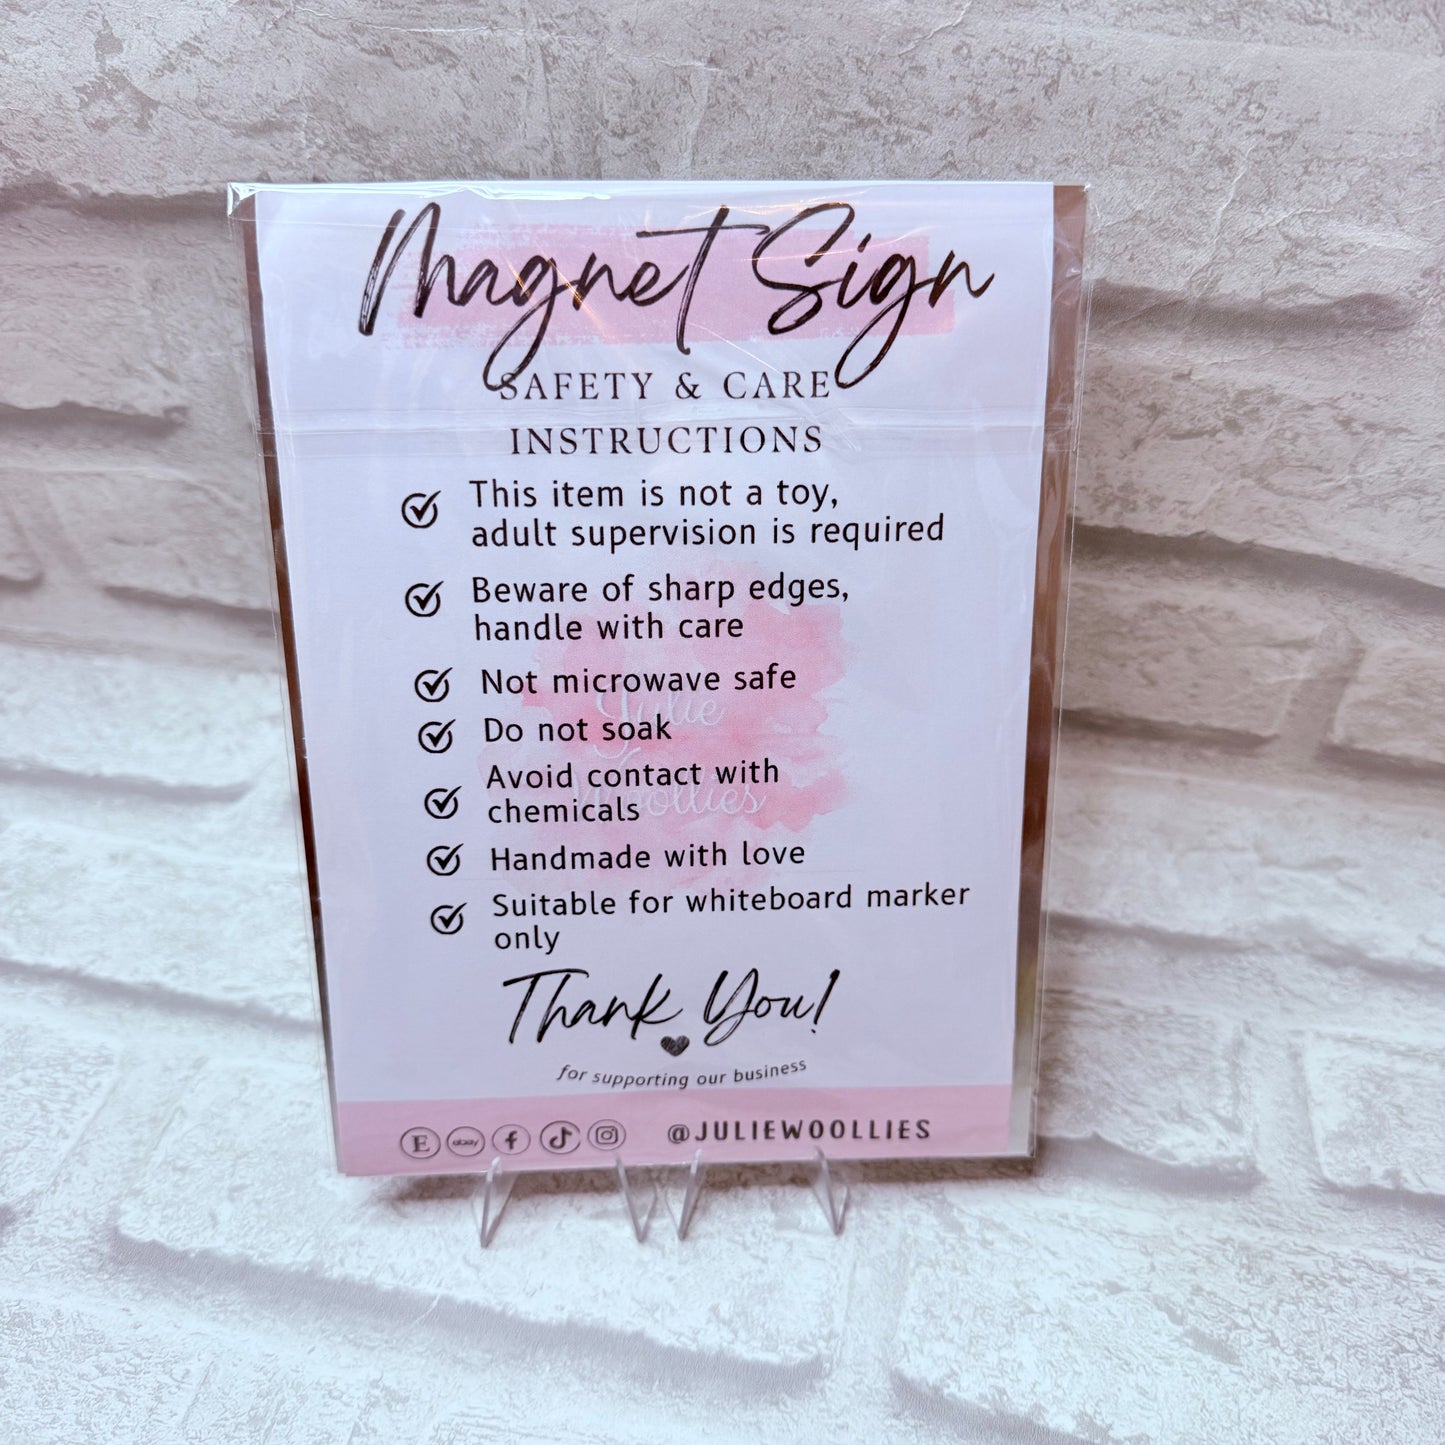 Magnet Sign
SAFETY & CARE
INSTRUCTIONS
This item is not a toy,
adult supervision is required
Beware of sharp edges,
handle with care
Not microwave safe
Do not soak
Avoid contact with
chemicals
Handmade with love
Suitable for whiteboard marker
only
Julie
Woollies
Thank You!
for supporting our business
E ebay f @JULIEWOOLLIES